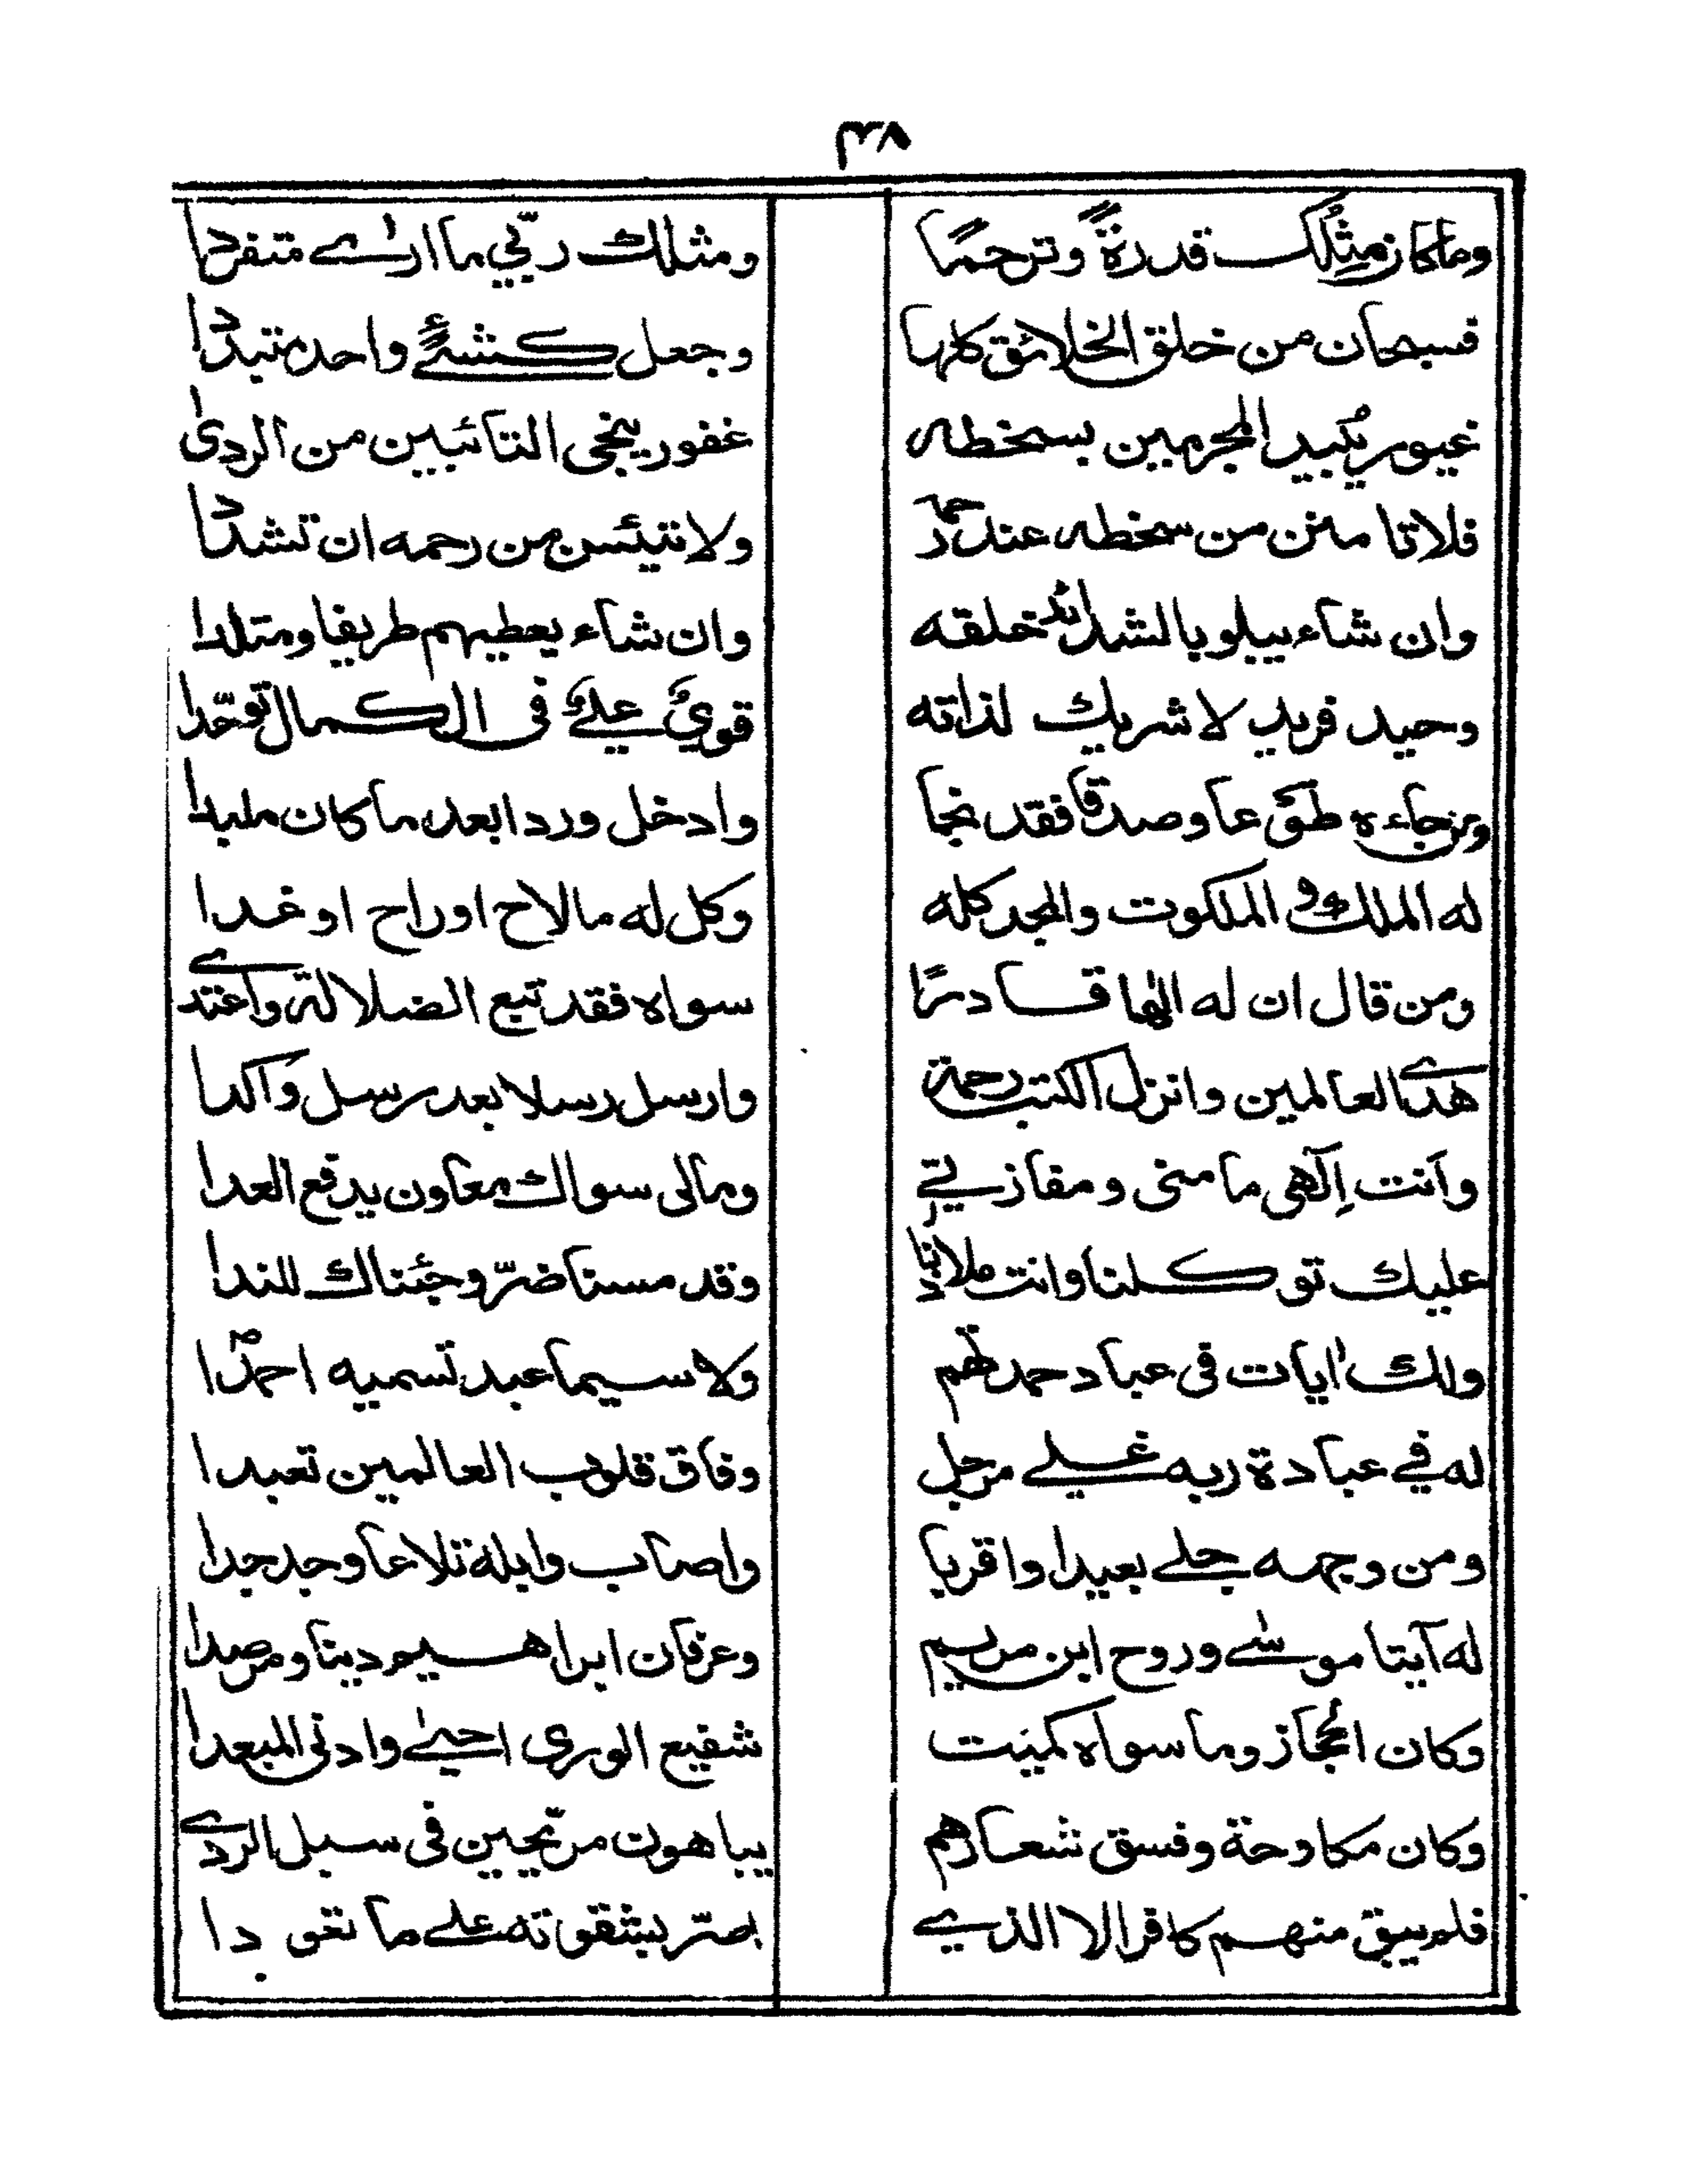 ٣٨
وما كان مثلك قدرةً وترحمًا ومثلك ربّي ما ارىٰ متفردا
فسبحان من خلق الخلائق كلها وجعل كشئٍ واحد متبدّدا
غيور يُبيد المجرمين بسخطه غفور ينجى التائبين من الردىٰ
فلا تامنن من سخطه عند رحمه ولا تيئسن من رحمه ان تشدّدا
وان شاء يبلو بالشدائد خلقه وان شاء يعطيهم طريفا ومتلدا
وحيد فريد لا شريك لذاته قويٌ علىٌ فى الكمال توحّدا
ومن جاءه طوعا وصدقا فقد نجا وادخل وردا بعد ما كان ملبدا
له الملك والملكوت والمجد كله وكل له ما لاح او راح او غدا
ومن قال ان له الٰها قادرًا سواه فقد تبع الضلالة واعتدى
هدى العالمين وانزل الكتب رحمة وارسل رسلا بعد رسل وَاَكدا
وَاَنت اِلٰهى مامنى ومفازتي ومالى سواك معاون يدفع العدا
عليك توكلنا وانت ملاذنا وقد مسنا ضرّ وجئناك للندا
ولك اٰيات فى عباد حمدتهم ولا سيما عبد تسميه احمدؐا
له في عبادة ربه غلي مرجل وفاق قلوب العالمين تعبدا
ومن وجهه جلے بعيدا واقربا واصاب وابله تلاعا وجدجدا
له آيتا موسىٰ وروح ابن مريم وعرفان ابراهيم دينا ومرصدا
وكان الحجاز وما سواه كميّت شفيع الورى احيىٰ وادنى المبعدا
وكان مكاوحة وفسق شعارهم يباهون مرتّجين فى سبل الردى
فلم يبق منهم كافر الا الذي اصرّ بشقوته على ما تعودا